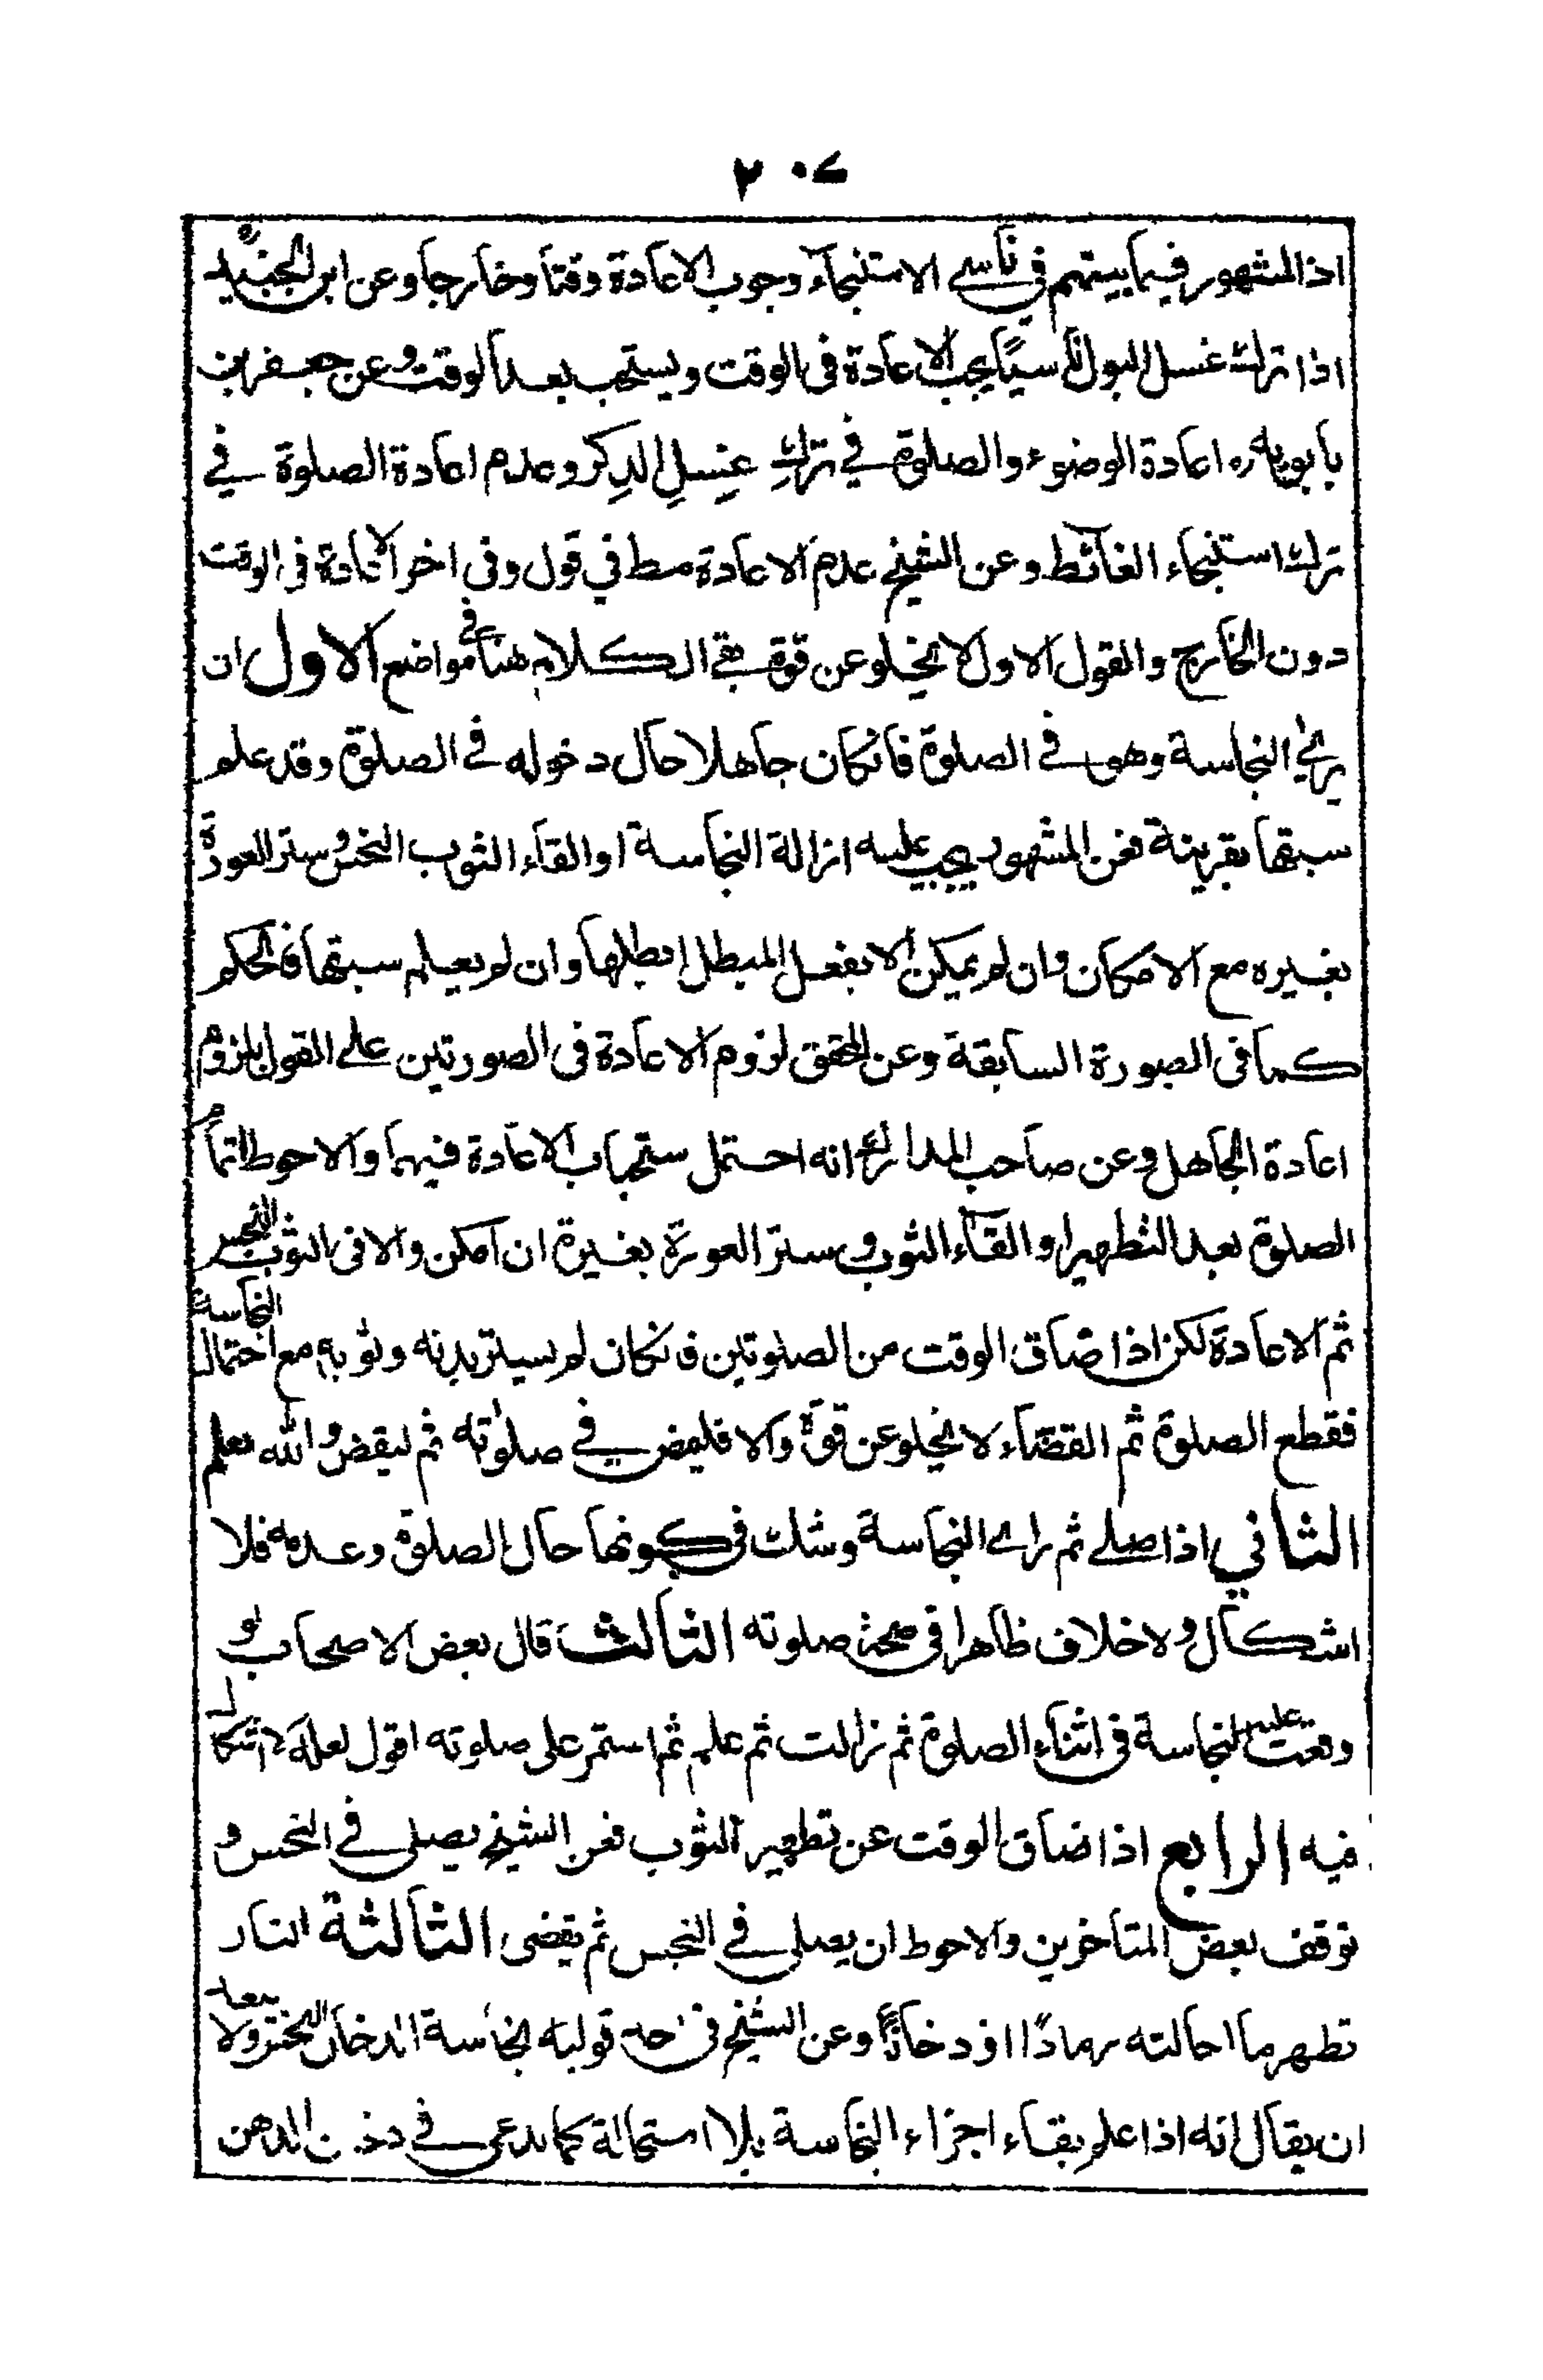 ٢٠٤
اذ المشهور فيما بينهم في ناسي الاستنجآء وجوب الاعادة وقتا وخارجا وعن ابن الجنيد
اذا ترك غسل البول ناسيًا يجب الاعادة فى الوقت ويستحب بعد الوقت وعن جعفر بن
بابويه ره اعادة الوضوء والصلوة في تركِ غِسلِ الذِكر وعدم اعادة الصلوة في
ترك استنجاء الغائط وعن الشيخ عدم الاعادة مط في قول وفى اخر الاعادة فى الوقت
دون الخارج والقول الاول لا يخلو عن قوة بقي الكلام هنا في مواضع الاول ان
يرى النجاسة وهو في الصلوة فانكان جاهلا حال دخوله في الصلوة وقد علم
سبقها بقرينة فعن المشهور يجب عليه ازالة النجاسة او القاء الثوب النجس وستر العورة
بغيره مع الامكان وان لم يمكن الا بفعل المبطل ابطلها وان لم يعلم سبقها فالحكم
كما فى الصورة السابقة وعن المحقق لزوم الاعادة فى الصورتين على القول بلزوم
اعادة الجاهل وعن صاحب المدارك انه احتمل ستحباب الاعادة فيهما والاحوط اتمام
الصلوة بعد التطهير او القاء الثوب وستر العورة بغيرة ان امكن والا فى الثوب النجس
ثم الاعادة لكن اذا ضاق الوقت من الصلوتين فانكان لم يستر بدنه وثوبه مع احتمال النجاسة
فقطع الصلوة ثم القضاء لا يخلو عن قوة والا فليمض في صلوته ثم ليقض والله يعلم
الثاني اذا صلے ثم راى النجاسة وشك فى كونها حال الصلوة وعدمه فلا
اشكال ولا خلاف ظاهرا فى صحة صلوته الثالث قال بعض الاصحاب لو
وقعت عليه النجاسة فى اثناء الصلوة ثم زالت ثم علم ثم استمر على صلوته اقول لعله لا اشكال
فيه الرابع اذا ضاق الوقت عن تطهير الثوب فعن الشيخ يصلى في النجس و
توقف بعض المتاخرين والاحوط ان يصلى في النجس ثم يقضى الثالثة النار
تطهر ما احالته رمادًا او دخانًا وعن الشيخ فى احد قوليه نجاسة الدخان النجس ولا يبعد
ان يقال انه اذا علم بقاء اجزاء النجاسة بلا استحالة كما يدعى في دخان الدهن